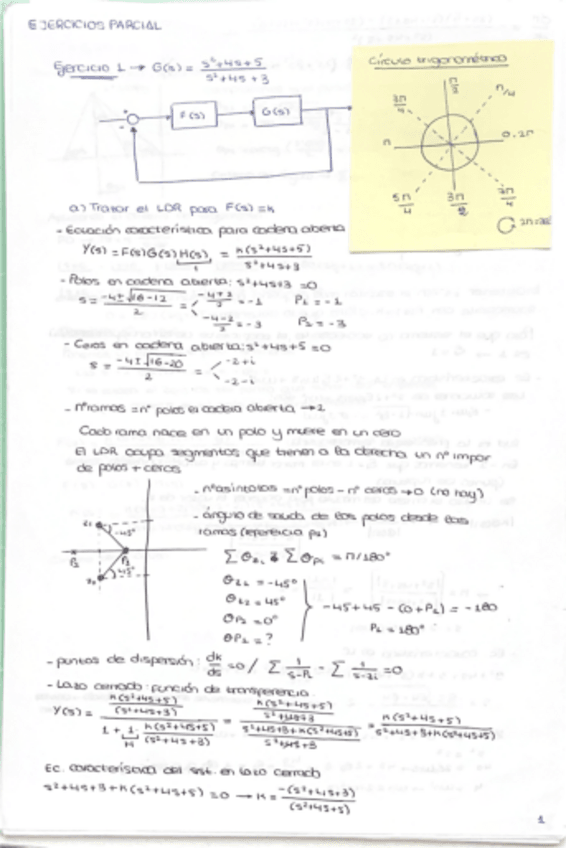 EJERCICIOS PARCIAL
Ejercicio 1 → G(s) = s²+4s+5 / s²+4s+3
Círculo trigonométrico
π/2
3π/4
π/4
π
0, 2π
5π/4
3π/2
7π/4
+
-
F(s)
G(s)
a) Trazar el LDR para F(s)=k
- Ecuación característica para cadena abierta
Y(s) = F(s)G(s)H(s) = k(s²+4s+5) / s²+4s+3
1
- Polos en cadena abierta: s²+4s+3 = 0
s = -4±√16-12 / 2 = -4+2 / 2 = -1 P1 = -1
-4-2 / 2 = -3 P2 = -3
- Ceros en cadena abierta: s²+4s+5 = 0
s = -4±√16-20 / 2 = -2+i
-2-i
- nºramas = nº polos en cadena abierta → 2
Cada rama nace en un polo y muere en un cero
El LDR ocupa segmentos que tienen a la derecha un nº impar
de polos + ceros
- nºasíntotas = nº polos - nº ceros → 0 (no hay)
- ángulo de salida de los polos desde las
ramas (referencia p2)
z1
-45º
P2
P1
45º
z2
∑θzi - ∑θpi = π/180º
θz1 = -45º
θz2 = 45º
-45+45 - (0+P1) = -180
θP2 = 0º
P1 = 180º
θP1 = ?
- puntos de dispersión: dk/ds = 0 / ∑ 1/s-Pi - ∑ 1/s-zi = 0
- Lazo cerrado: función de transferencia
Y(s) = k(s²+4s+5)/(s²+4s+3) / 1+1/1·k(s²+4s+5)/(s²+4s+3) = k(s²+4s+5)/s²+4s+3 / s²+4s+3+k(s²+4s+5)/s²+4s+3 = k(s²+4s+5) / s²+4s+3+k(s²+4s+5)
Ec. característica del sist. en lazo cerrado
s²+4s+3+k(s²+4s+5) = 0 → k = -(s²+4s+3) / (s²+4s+5)
1